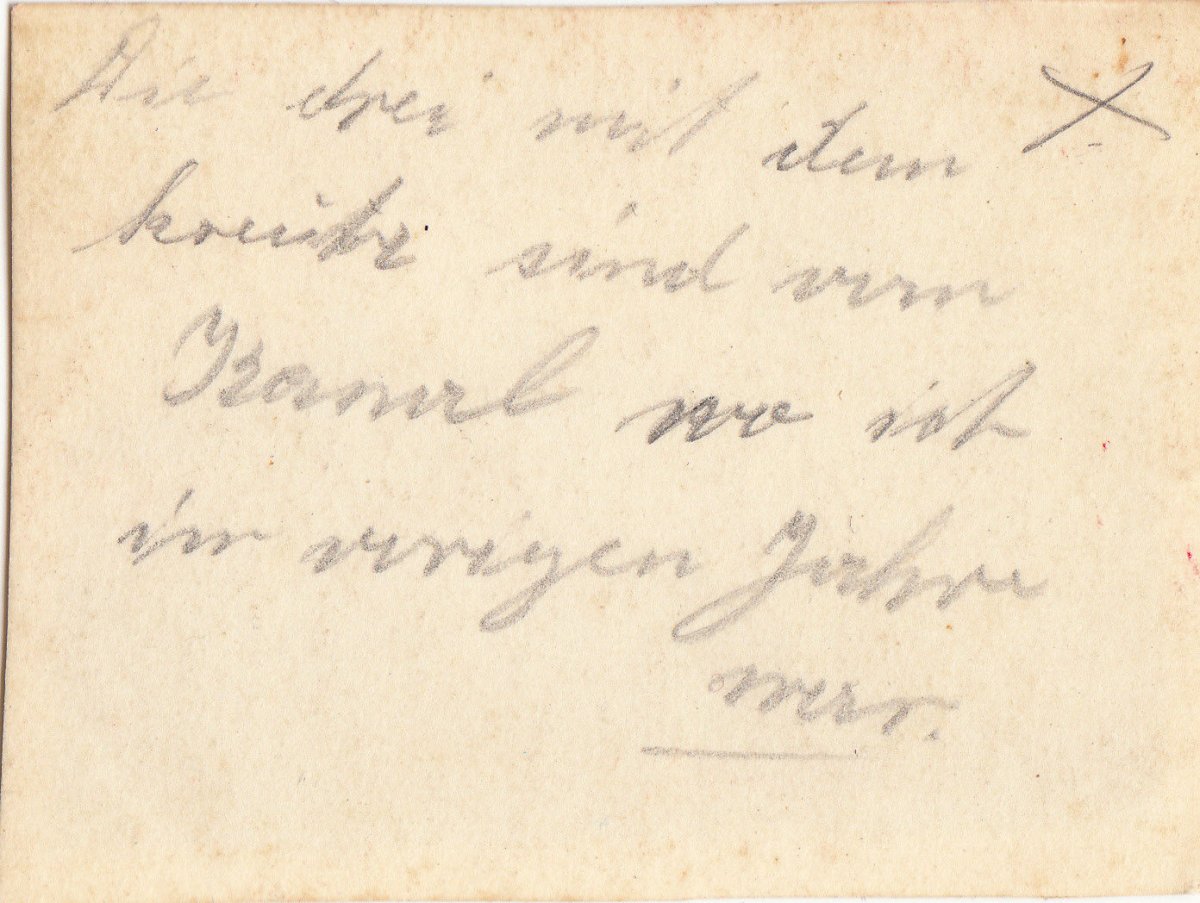 Die drei mit dem X
kreutz sind vom
wo ich
im vorigen Jahre
war.